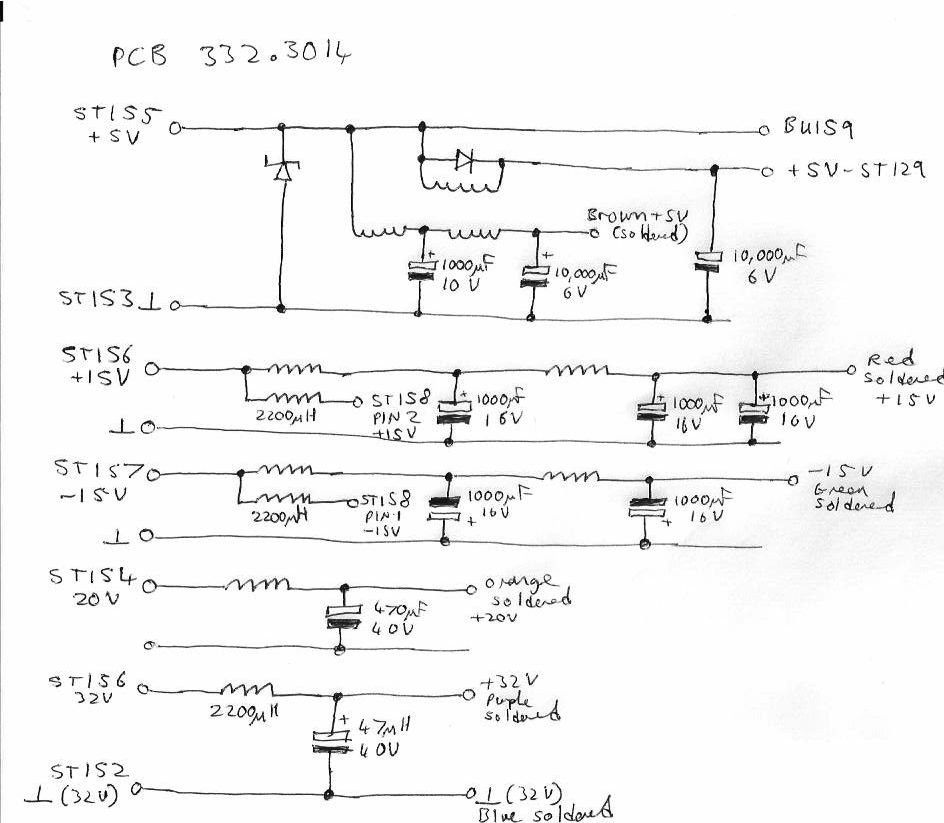 PCB 332.3014
ST155
+5V
BU159
+5V-ST129
Brown+5V
(soldered)
1000µF
10V
10,000µF
6V
10,000µF
6V
ST153 ⊥
ST156
+15V
Red
soldered
+15V
2200µH
ST158
PIN2
+15V
1000µF
16V
1000µF
16V
1000µF
16V
⊥
ST157
-15V
-15V
Green
soldered
2200µH
ST158
PIN1
-15V
1000µF
16V
1000µF
16V
⊥
ST154
20V
orange
soldered
+20V
470µF
40V
ST156
32V
+32V
Purple
soldered
2200µH
47µH
40V
ST152
⊥ (32V)
⊥ (32V)
Blue soldered